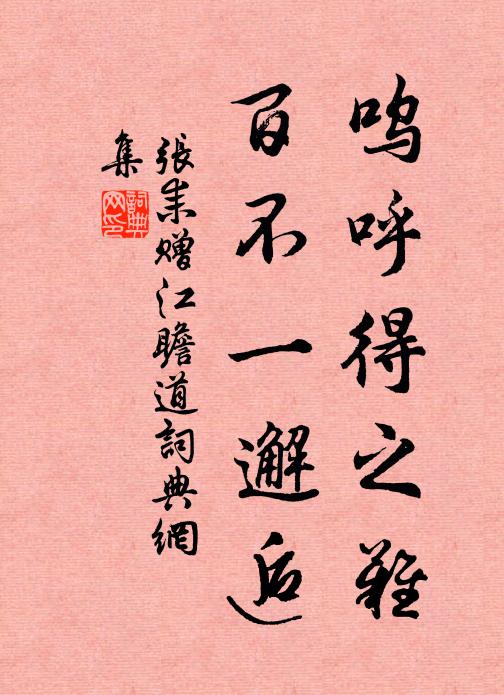 嗚呼得之難
百不一邂逅
張耒贈江瞻道詞典網
集
詞典
网印